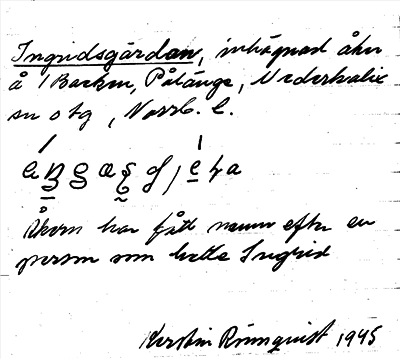 Ingridsgärdan, inhägnad åker
å 1 Backen, Pålänge, Nederkalix
sn o tg, Norrb. l.
Åkern har fått namn efter en
person som hette Ingrid
Kerstin Rönnquist 1945